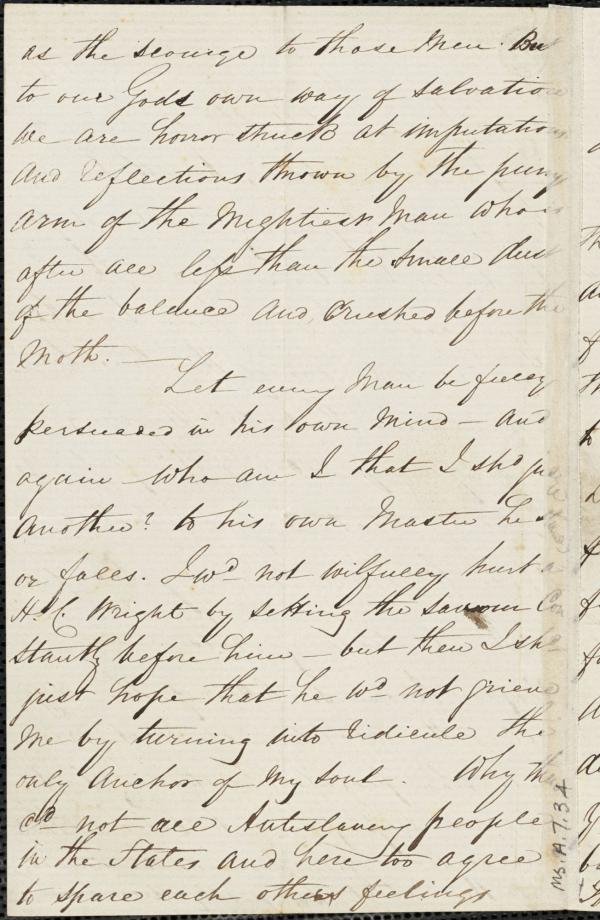 as the scourge to those Men. But
to our Gods own way of salvation
we are horror struck at imputations
and reflections thrown by the puny
arm of the Mightiest Man who is
after all less than the small dust
of the balance and crushed before the
Moth. —
Let every Man be fully
persuaded in his own Mind — and
again — Who am I that I shd ju
another? to his own Master he s
or falls. I wd not wilfully hurt a
H. C. Wright by setting the saviour Con
stantly before him — but then I sh
just hope that he wd not grieve
Me by turning into ridicule the
only Anchor of My Soul. Why th
cd not all Antislavery people
in the States and here too agree
to spare each others feelings
Ms.A.7.34